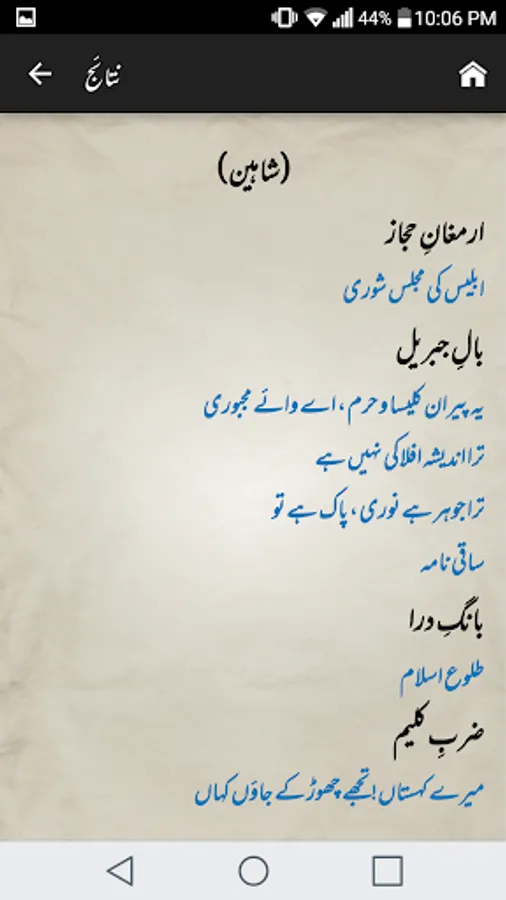 44% 10:06 PM
نتائج
(شاہین)
ارمغانِ حجاز
ابلیس کی مجلس شوری
بالِ جبریل
یہ پیران کلیسا و حرم، اے وائے مجبوری
ترا اندیشہ افلاکی نہیں ہے
ترا جوہر ہے نوری، پاک ہے تو
ساقی نامہ
بانگِ درا
طلوع اسلام
ضربِ کلیم
میرے کہستاں! تجھے چھوڑ کے جاؤں کہاں